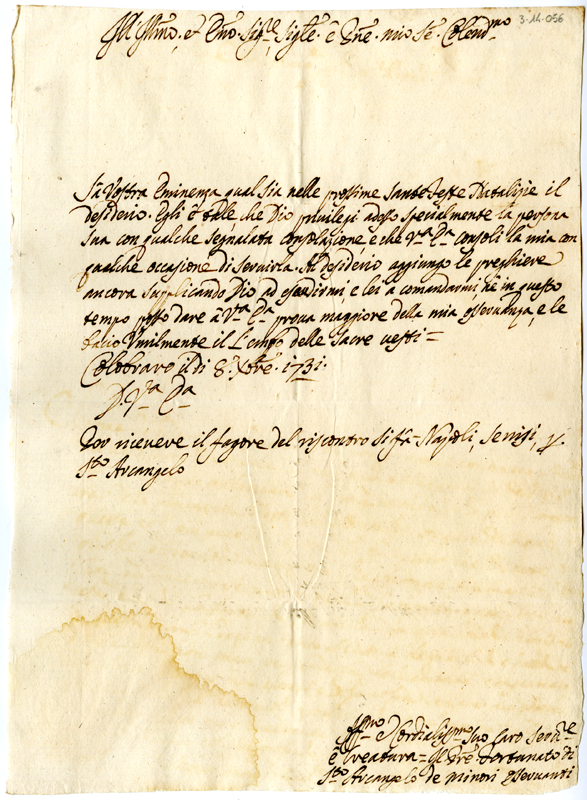 3-14-056
Ill. Illmo, et Emo Sigre, Sigre e Pne. mio Se. Colendmo
Sa Vostra Eminenza qual sia nelle prossime sante feste Natalizie il
desiderio. Egli è tale, che Dio privilegi adesso specialmente la persona
sua con qualche segnalata consolazione e che Vra Ema consoli la mia con
qualche occasione di servirla. Al desiderio aggiungo le preghiere
ancora supplicando Dio ad esaudirmi, e lei a comandarmi, ne in questo
tempo posso dare à Vra Ema prova maggiore della mia osservanza, e le
bacio Umilmente il Lembo delle sacre vesti =
Colobraro il dì 8. Xbre. 1731.
D. Vra Ema
Por ricevere il favore del riscontro si fa = Napoli, Senisi, p.
Sto Arcangelo
Affmo e Cordialissmo suo caro Servre
e Creatura = Fortunato di
Sto Arcangelo de minori osservanti